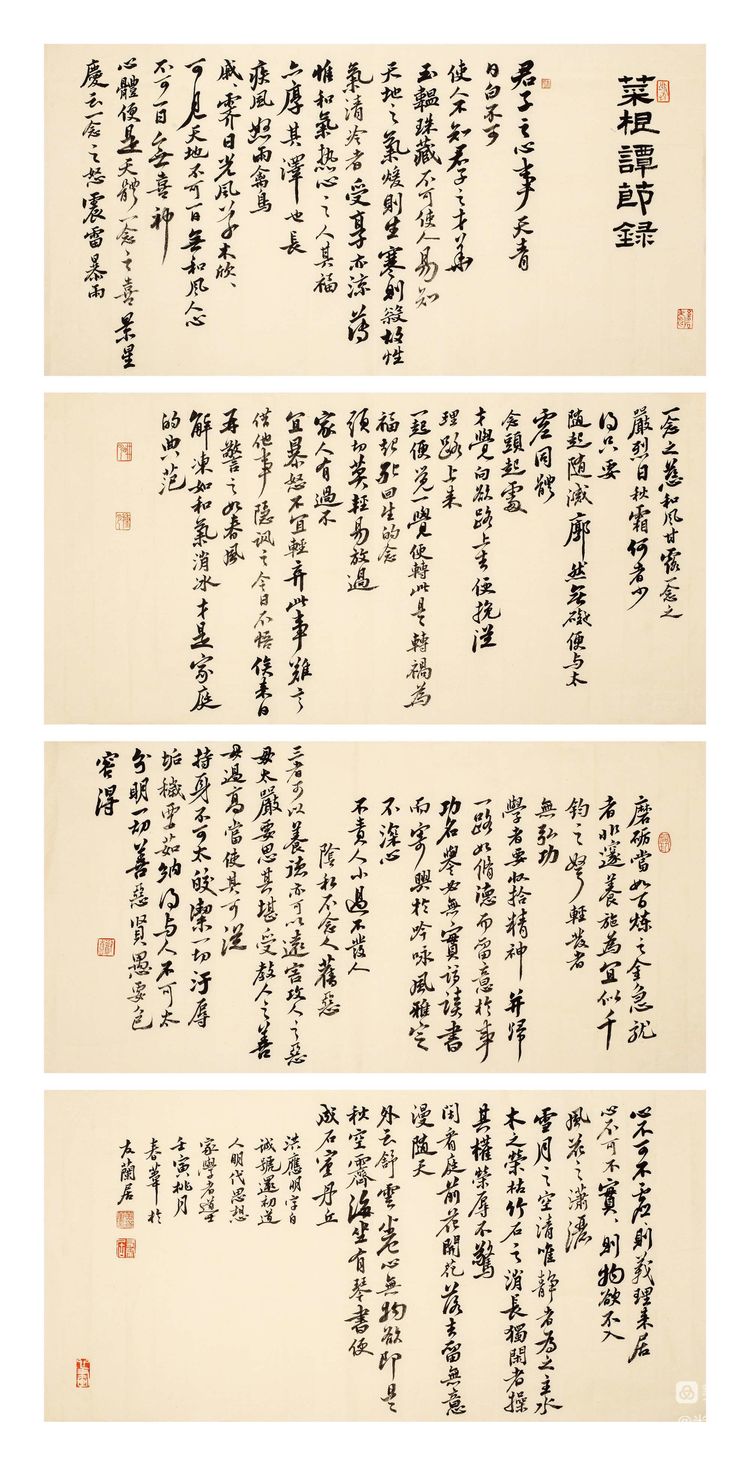 菜根譚節錄
君子之心事天青
日白不可
使人不知君子之才華
玉韞珠藏不可使人易知
天地之氣煖則生寒則殺故性
氣清冷者受享亦涼薄
惟和氣熱心之人其福
亦厚其澤也長
疾風怒雨禽鳥
戚、霽日光風草木欣、
可見天地不可一日無和風人心
不可一日無喜神
心體便是天體一念之喜景星
慶云一念之怒震雷暴雨
一念之慈和風甘露一念之
嚴烈日秋霜何者少
得只要
隨起隨滅廓然無礙便与太
虛同體
念頭起處
才覺向欲路上去便挽從
理路上來
一起便覺一覺便轉此是轉禍為
福起死回生的念
頭切莫輕易放過
家人有過不
宜暴怒不宜輕棄此事難言
借他事隱諷之今日不悟俟來日
再警之如春風
解凍如和氣消冰才是家庭
的典范
磨礪當如百煉之金急就
者非邃養施為宜似千
鈞之弩輕發者
無弘功
學者要收拾精神并歸
一路如脩德而留意於事
功名譽必無實詣讀書
而寄興於吟咏風雅定
不深心
不責人小過不發人
陰私不念人舊惡
三者可以養德亦可以遠害攻人之惡
毋太嚴要思其堪受教人之善
毋過高當使其可從
持身不可太皎潔一切汙辱
垢穢要茹納得与人不可太
分明一切善惡賢愚要包
容得
心不可不虛、則義理來居
心不可不實、則物欲不入
風花之瀟灑
雪月之空清唯靜者為之主水
木之榮枯竹石之消長獨閑者操
其權榮辱不驚
閑看庭前花開花落去留無意
漫隨天
外云舒雲卷心無物欲即是
秋空霽海坐有琴書便
成石室丹丘
洪應明字自
誠號還初道
人明代思想
家學者道士
壬寅桃月
春華於
友蘭居